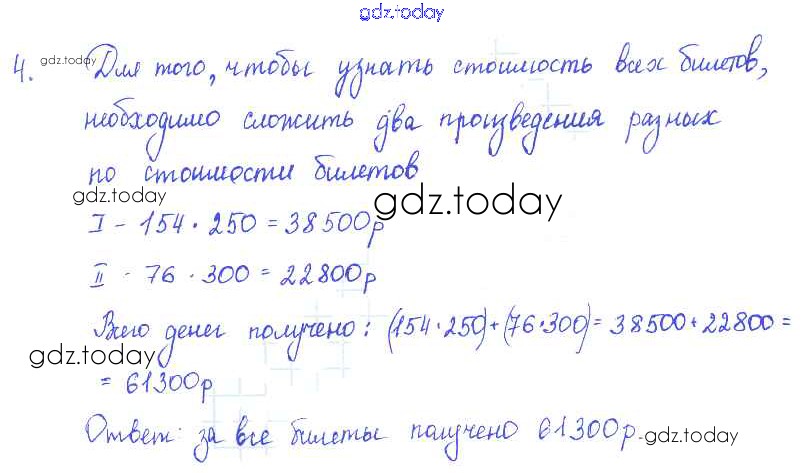 gdz.today
4. gdz.today Для того, чтобы узнать стоимость всех билетов,
необходимо сложить два произведения разных
по стоимости билетов
gdz.today gdz.today
I - 154 · 250 = 38500р
II - 76 · 300 = 22800р
Всего денег получено: (154·250)+(76·300)= 38500+22800 =
gdz.today
= 61300р
Ответ: за все билеты получено 61300р. gdz.today